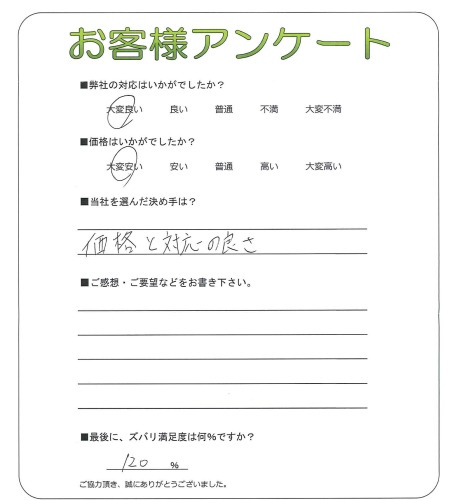 お客様アンケート
■弊社の対応はいかがでしたか？
大変良い 良い 普通 不満 大変不満
■価格はいかがでしたか？
大変安い 安い 普通 高い 大変高い
■当社を選んだ決め手は？
価格と対応の良さ
■ご感想・ご要望などをお書き下さい。
■最後に、ズバリ満足度は何％ですか？
120 ％
ご協力頂き、誠にありがとうございました。